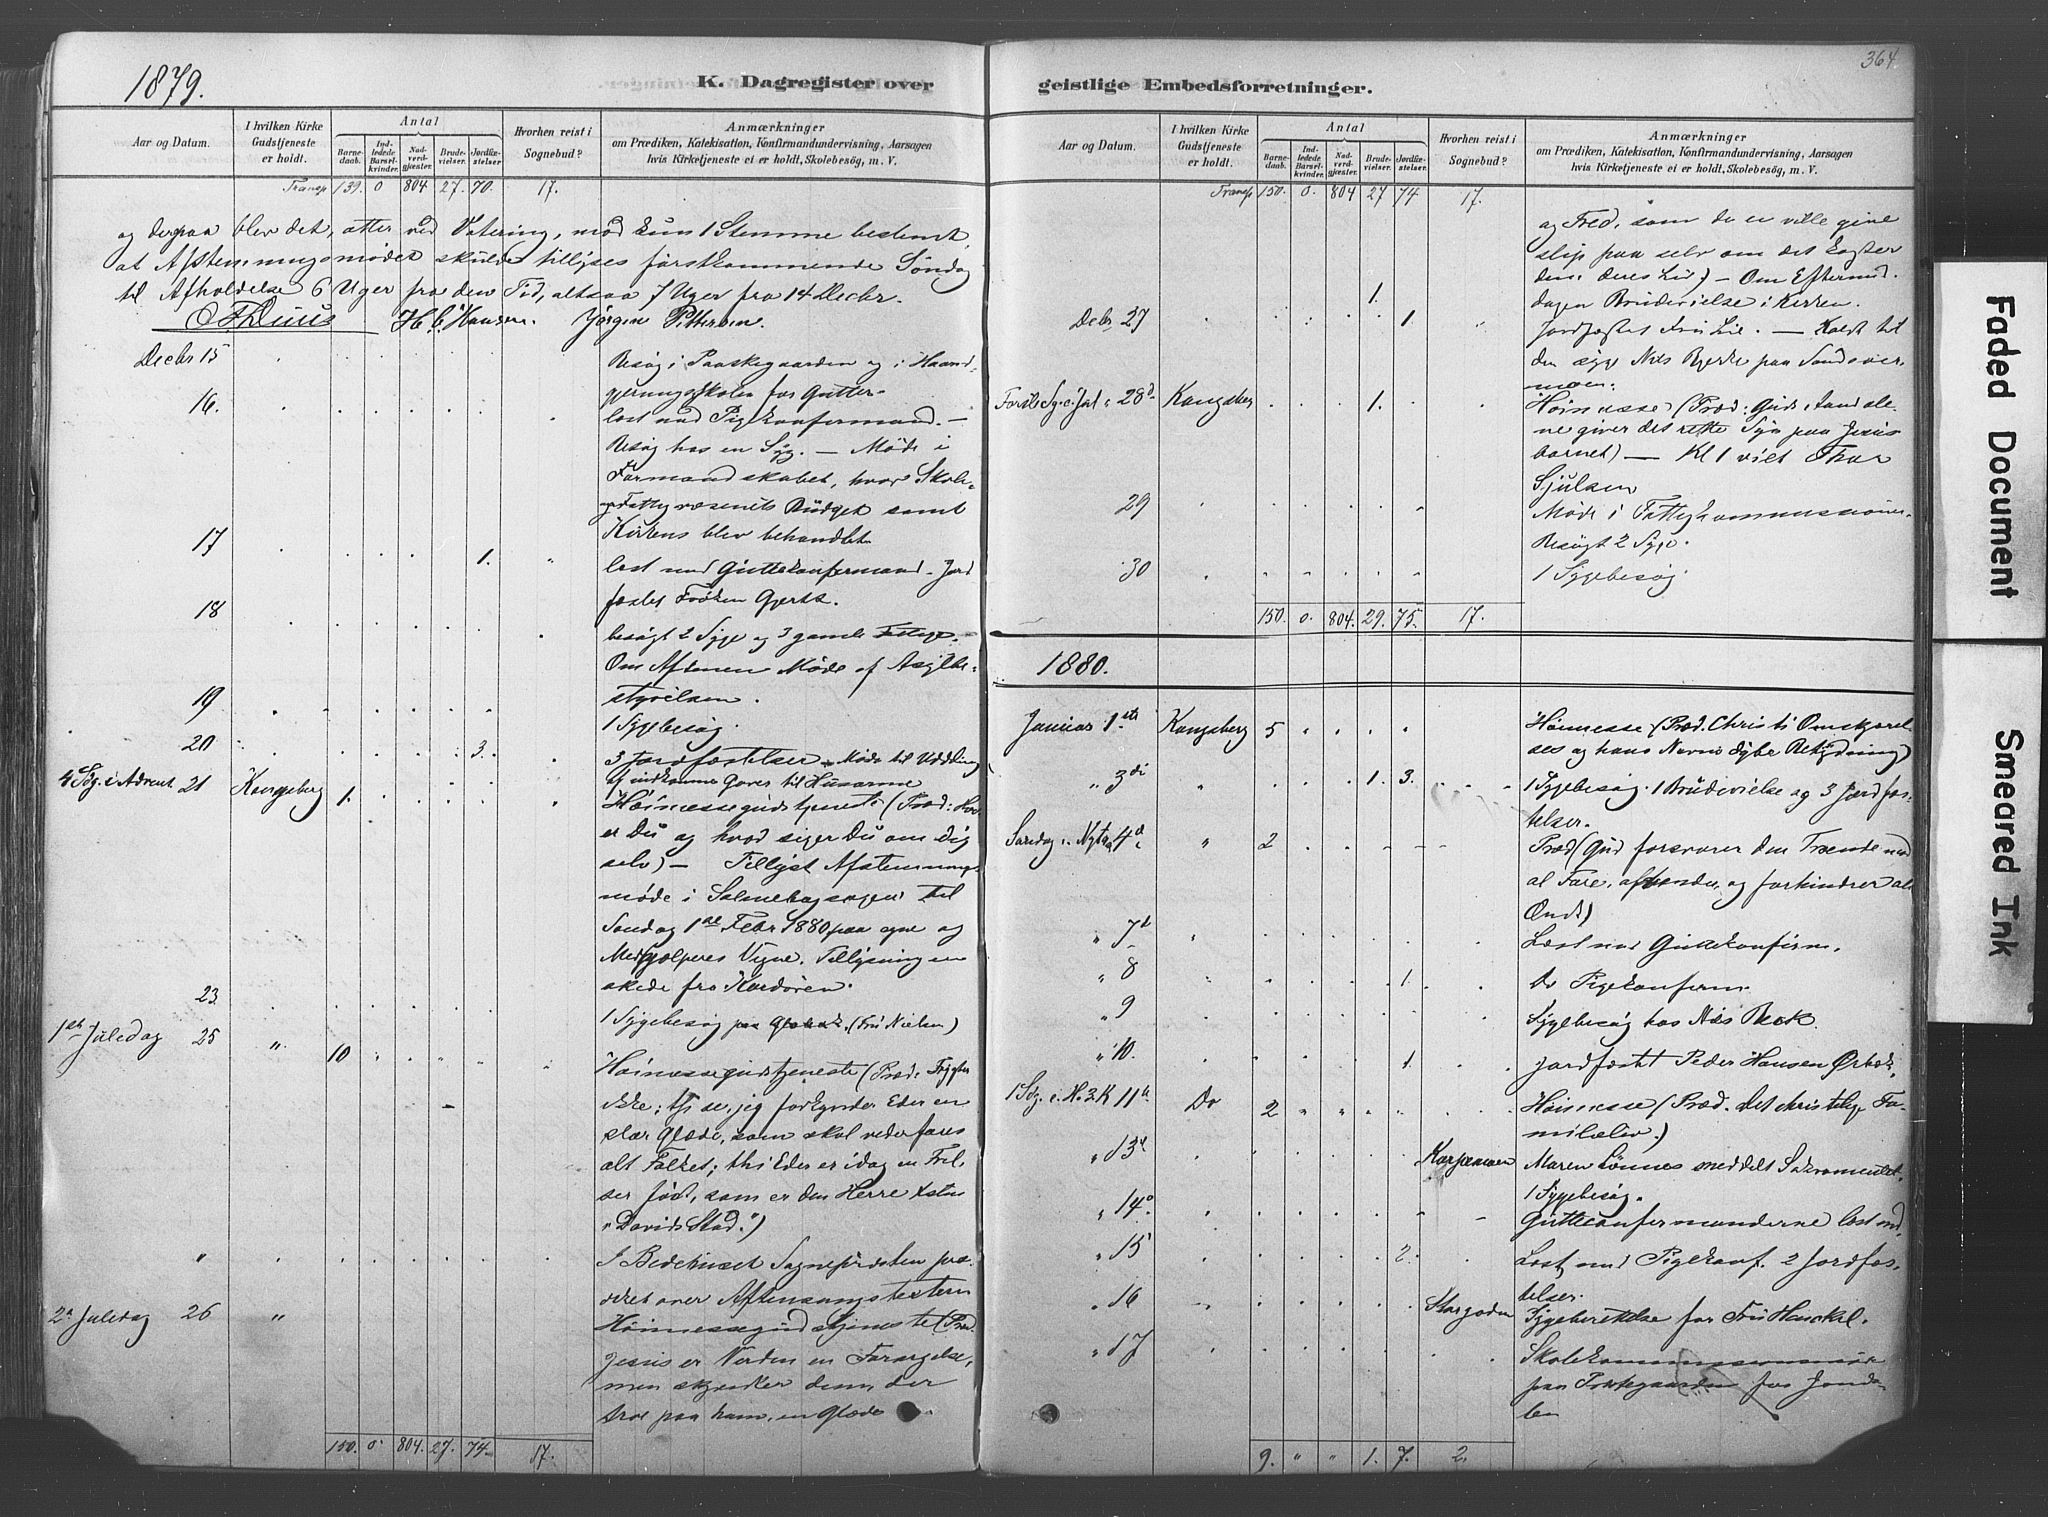 364
1879.
K. Dagregister over
geistlige Embedsforretninger.
Aar og Datum.
I hvilken Kirke Gudstjeneste er holdt.
Antal
Barnedaab.
Indledede Barselkvinder.
Nadverdgjester.
Brudevielser.
Jordfæstelser.
Hvorhen reist i Sognebud?
Anmærkninger
om Prædiken, Katekisation, Konfirmandundervisning, Aarsagen
hvis Kirketjeneste ei er holdt, Skolebesøg, m. V.
Transp 139. 0 804. 27. 70. 17.
og derpaa blev det, atter ved Votering, mod kun 1 Stemme bestemt,
at Afstemningsmødet skulde tillyses førstkommende Søndag
til Afholdelse 6 Uger fra den Tid, altsaa 7 Uger fra 14 Decbr.
H. C. Hansen. Jörgen Pettersen.
Decbr 15
Besøg i Paaskegaarden og i Haand-
gjerningsskolen for Gutter.
16.
læst med Pigekonfirmand. —
Besøg hos en Syg. — Møde i
Formandskabet, hvor Skole-
og Fattigvæsenets Budget samt
Kirkens blev behandlet
17 1.
læst med Guttekonfirmand. Jord
fæstet Frøken Gjertz.
18
besøgt 2 Syge og 3 gamle Fattige.
Om Aftenen Møde af Asylbe-
styrelsen.
19
1 Sygebesøg.
20 3.
3 Jordfæstelser. Møde til Uddeling
af indkomne Gaver til Husarme
4 Sdg. i Advent 21 Kongsberg 1.
Høimessegudstjeneste (Præd: Hvo
er Du og hvad siger Du om dig
selv) — Tillyst Afstemnings
møde i Salmebogsagen til
Søndag 1ste Febr 1880 paa egne og
Medhjælperes Vegne. Tillysningen
skede fra Kordøren.
23
1 Sygebesøg paa (Fru Nielsen)
1ste Juledag 25 " 10
Høimessegudstjeneste (Præd: Frygter
ikke; thi se, jeg forkynder Eder en
stor Glæde, som skal vederfares
alt Folket; thi Eder er idag en Frel-
ser født, som er den Herre Kristus
i Davids Stad.")
"
I Bedehuset Sognepræsten præ-
diket over Aftensangsteksten
2n Juledag 26 "
Høimessegudstjeneste (Præd.
Jesus er Verden en Forargelse,
men skjenker dem, der
tror paa ham, en Glæde
150. 0. 804. 27. 74. 17.
Aar og Datum.
I hvilken Kirke Gudstjeneste er holdt.
Antal
Barnedaab.
Indledede Barselkvinder.
Nadverdgjester.
Brudevielser.
Jordfæstelser.
Hvorhen reist i Sognebud?
Anmærkninger
om Prædiken, Katekisation, Konfirmandundervisning, Aarsagen
hvis Kirketjeneste ei er holdt, Skolebesøg, m. V.
Transp 150. 0. 804 27 74. 17.
og Fred, som de ei ville give
slip paa selv om det koster
dem deres Liv) — Om Eftermid-
dagen Brudevielse i Kirken.
1.
Decbr 27 1.
Jordfæstet Fru Lie. — Kaldt til
den syge Nils Bjerke paa Sandsvær-
moen.
Første Sg. e. Jul 28d Kongsberg 1.
Høimesse (Præd: Guds Aand ale-
ne giver det rette Syn paa Jesus
barnet) — Kl 1 viet Thor
Sjulsen
29
Møde i Fattigkommissionen.
Besøgt 2 Syge.
30
1 Sygebesøg
150. 0. 804. 29. 75. 17.
1880.
Januar 1ste Kongsberg 5
Høimesse (Præd. Christi Omskjærel-
ses og hans Navns dybe Betydning)
" 3di 1. 3.
1 Sygebesøg. 1 Brudevielse og 3 Jordfæs-
telser.
Søndag e. Nytaar 4d " 2
Præd (Gud forsvarer den Troende mod
al Fare, afvender og forhindrer alt
Ondt)
" 7d
Læst med Guttekonfirm.
" 8 1.
Do Pigekonfirm.
" 9
Sygebesøg hos Nils Beck
" 10. 1.
Jordfæstet Peder Hansen Ørbæk.
1 Sdg. e. H. 3. K 11te Do 2
Høimesse (Præd. det christelige Fa-
milieliv.)
" 13d Karpemoen
Maren Lønnes meddelt Sakramentet.
1 Sygebesøg.
" 14d
Guttekonfermanderne læst med
" 15 2.
Læst med Pigekonf. 2 Jordfæs-
telser.
" 16
Sygeberettelse for Fru Henckel.
" 17
Skolekommissionsmøde
paa Prestegaarden for Jonds-
len
9. " " 1. 7. 2.
Faded Document
Smeared Ink